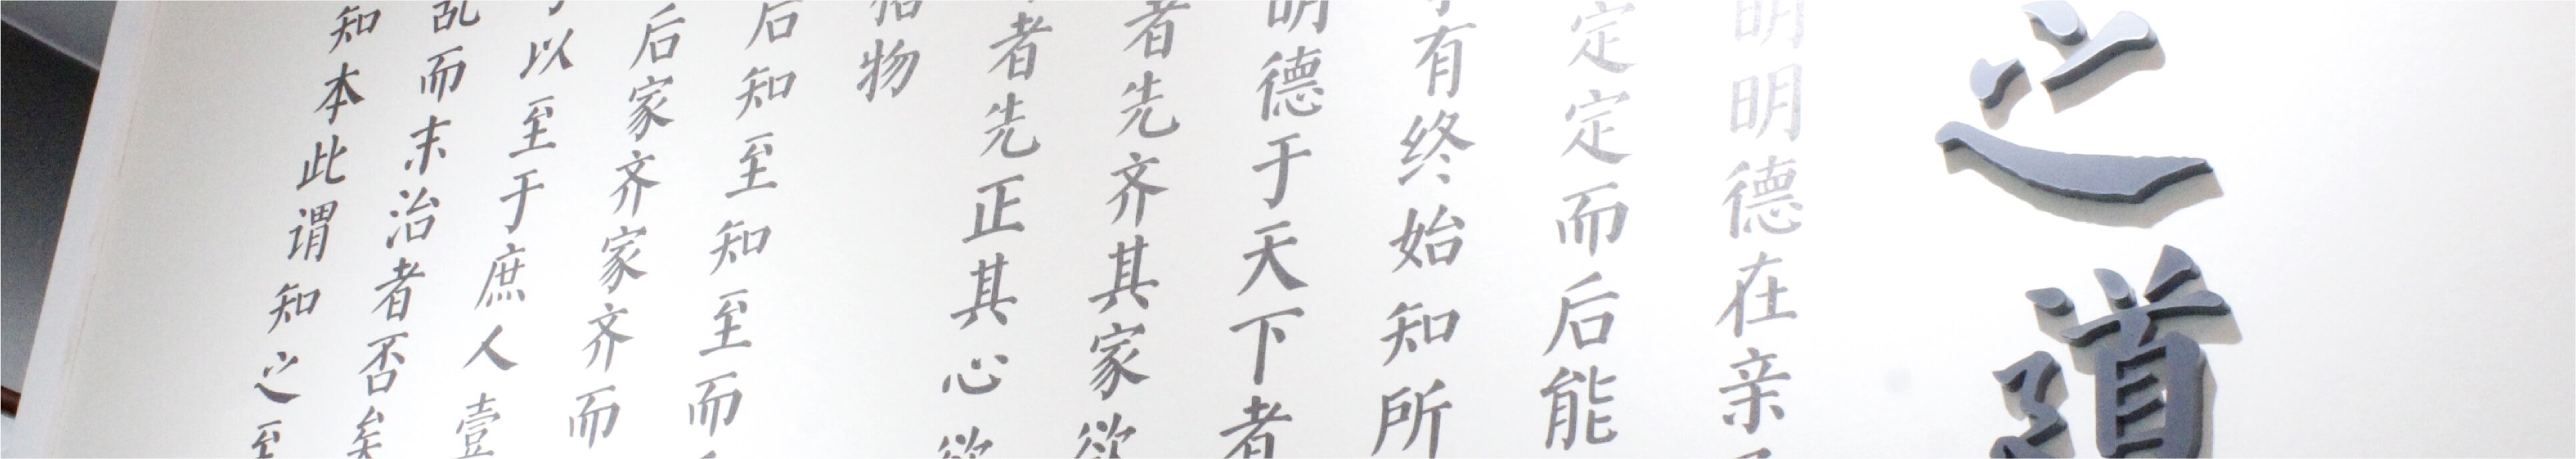 之道
明明德在亲
定定而后能
有终始知所
明德于天下者
者先齐其家欲
者先正其心欲
格物
后知至知至而
后家齐家齐而
以至于庶人壹
乱而末治者否矣
知本此谓知之至